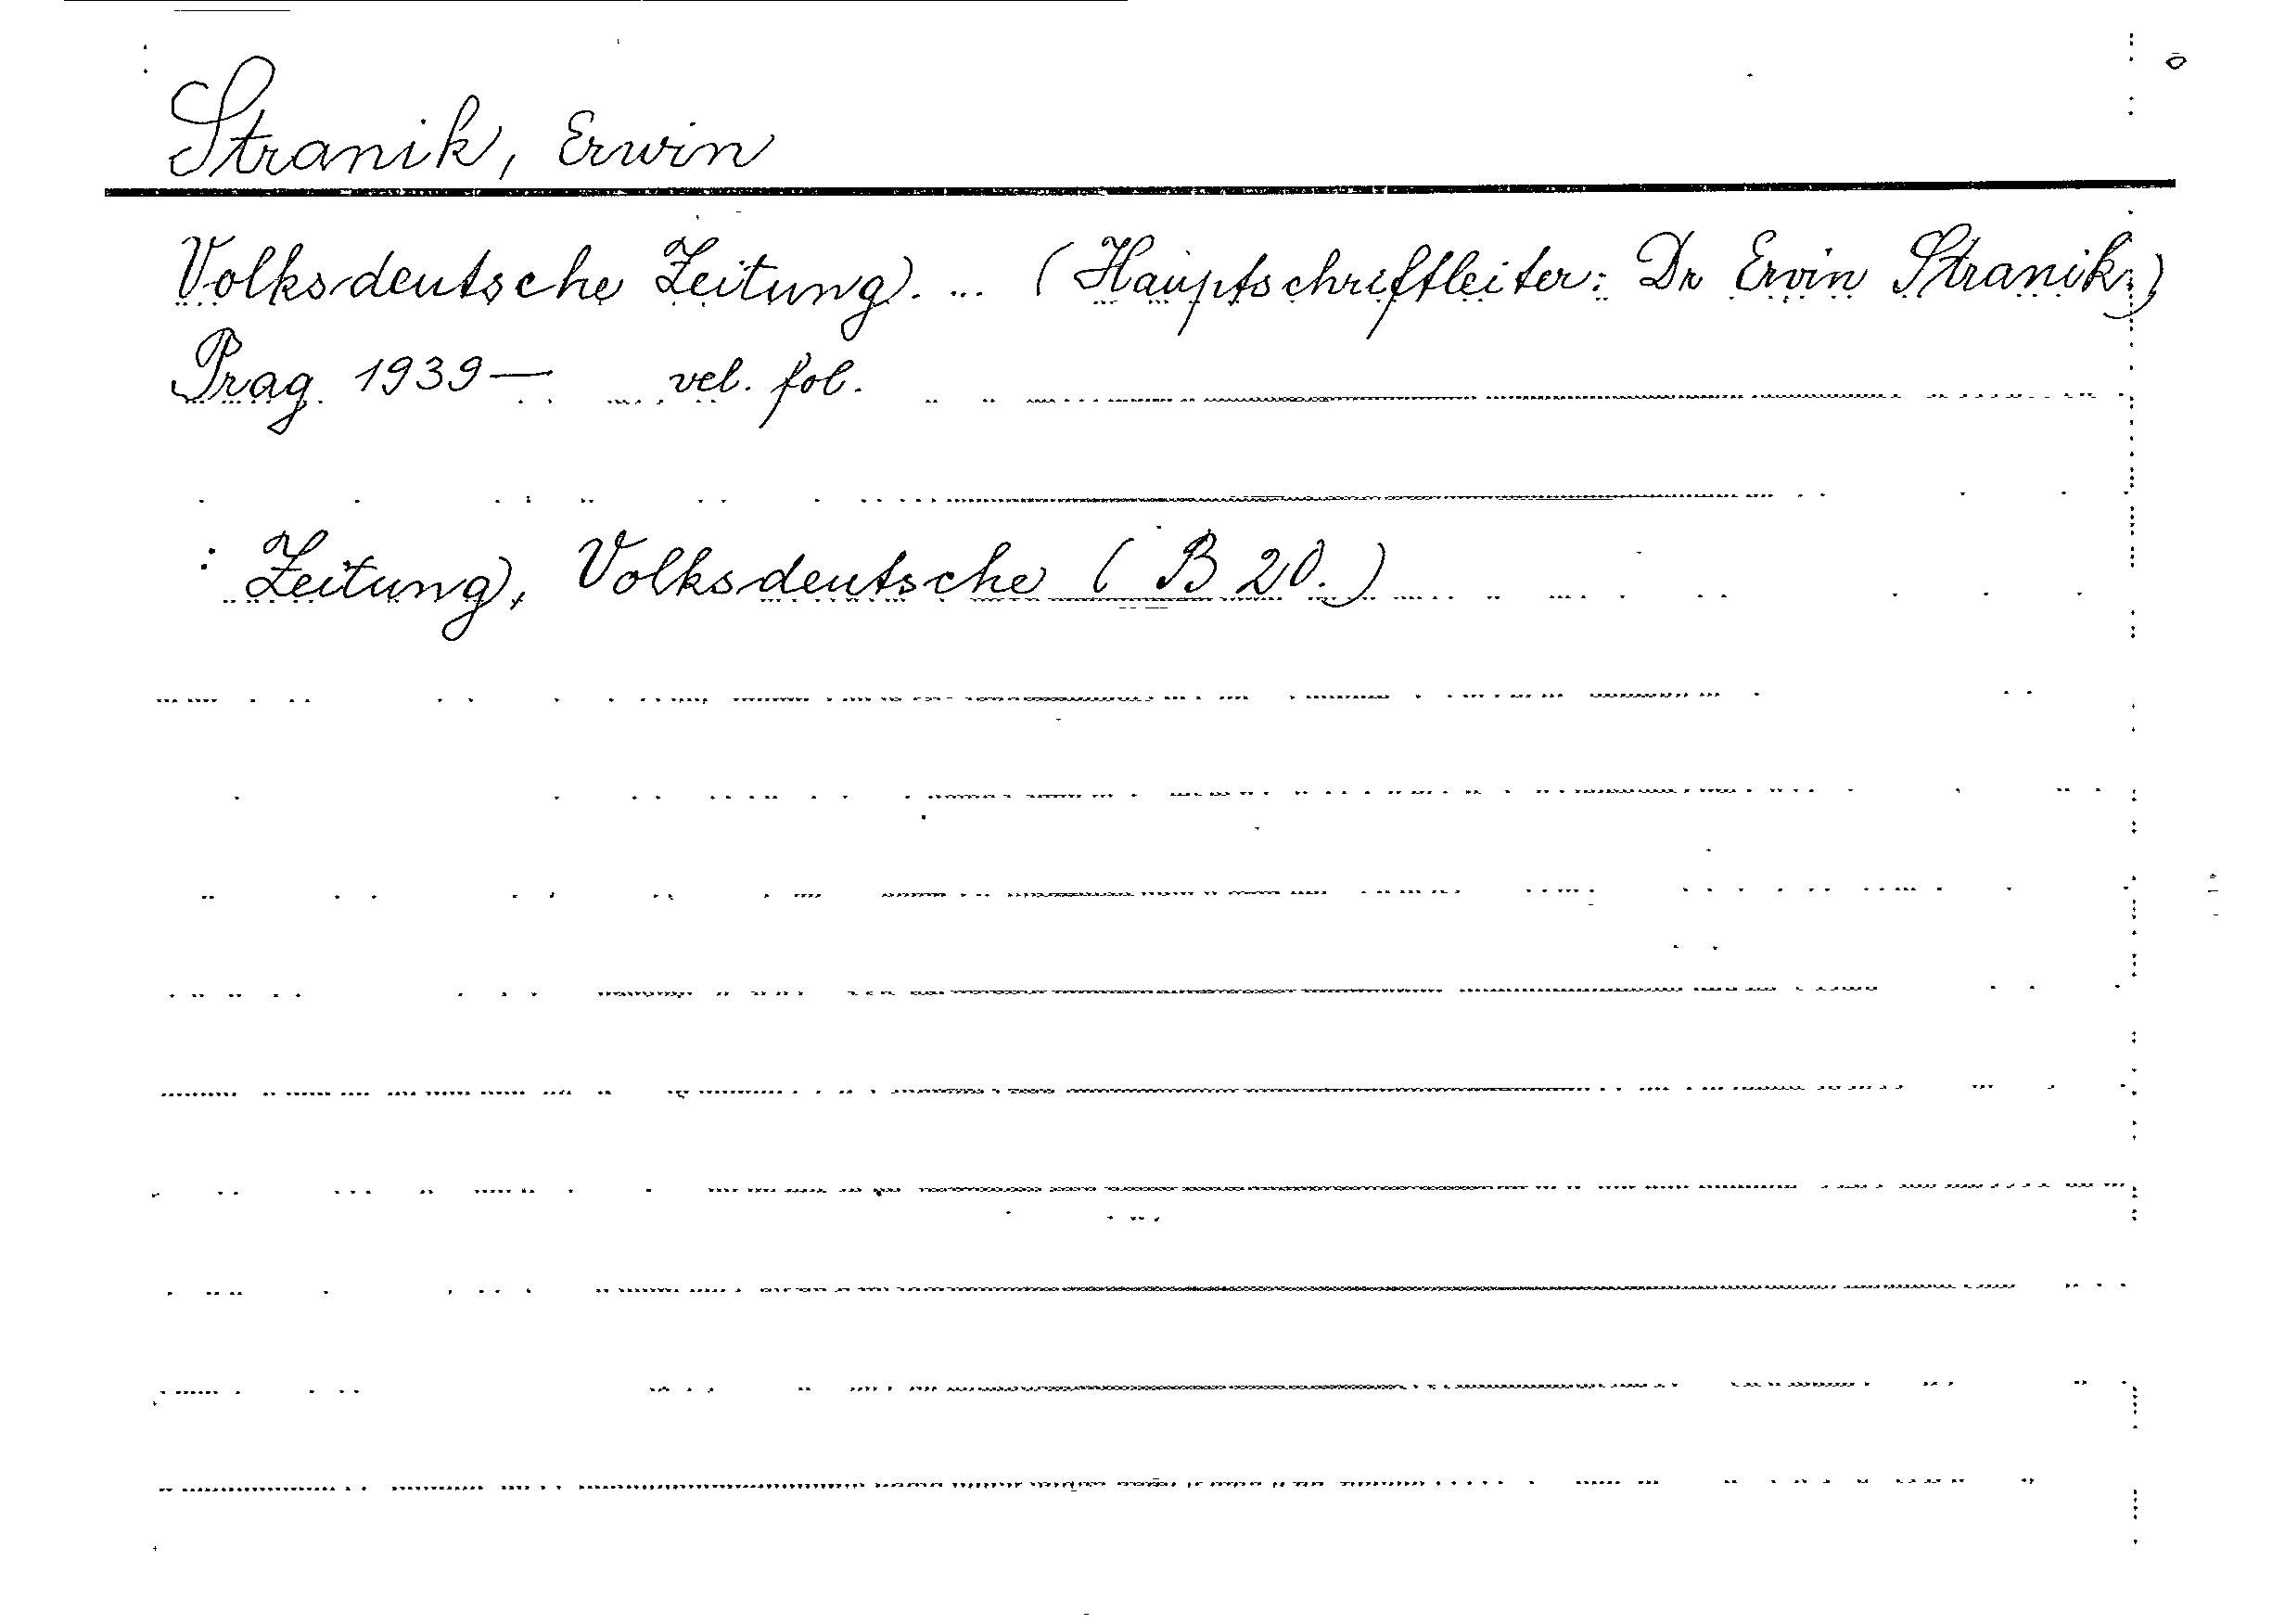 Stranik, Erwin
Volksdeutsche Zeitung. ... (Hauptschriftleiter: Dr Erwin Stranik.)
Prag 1939— vel. fol.
: Zeitung, Volksdeutsche (B 20.)